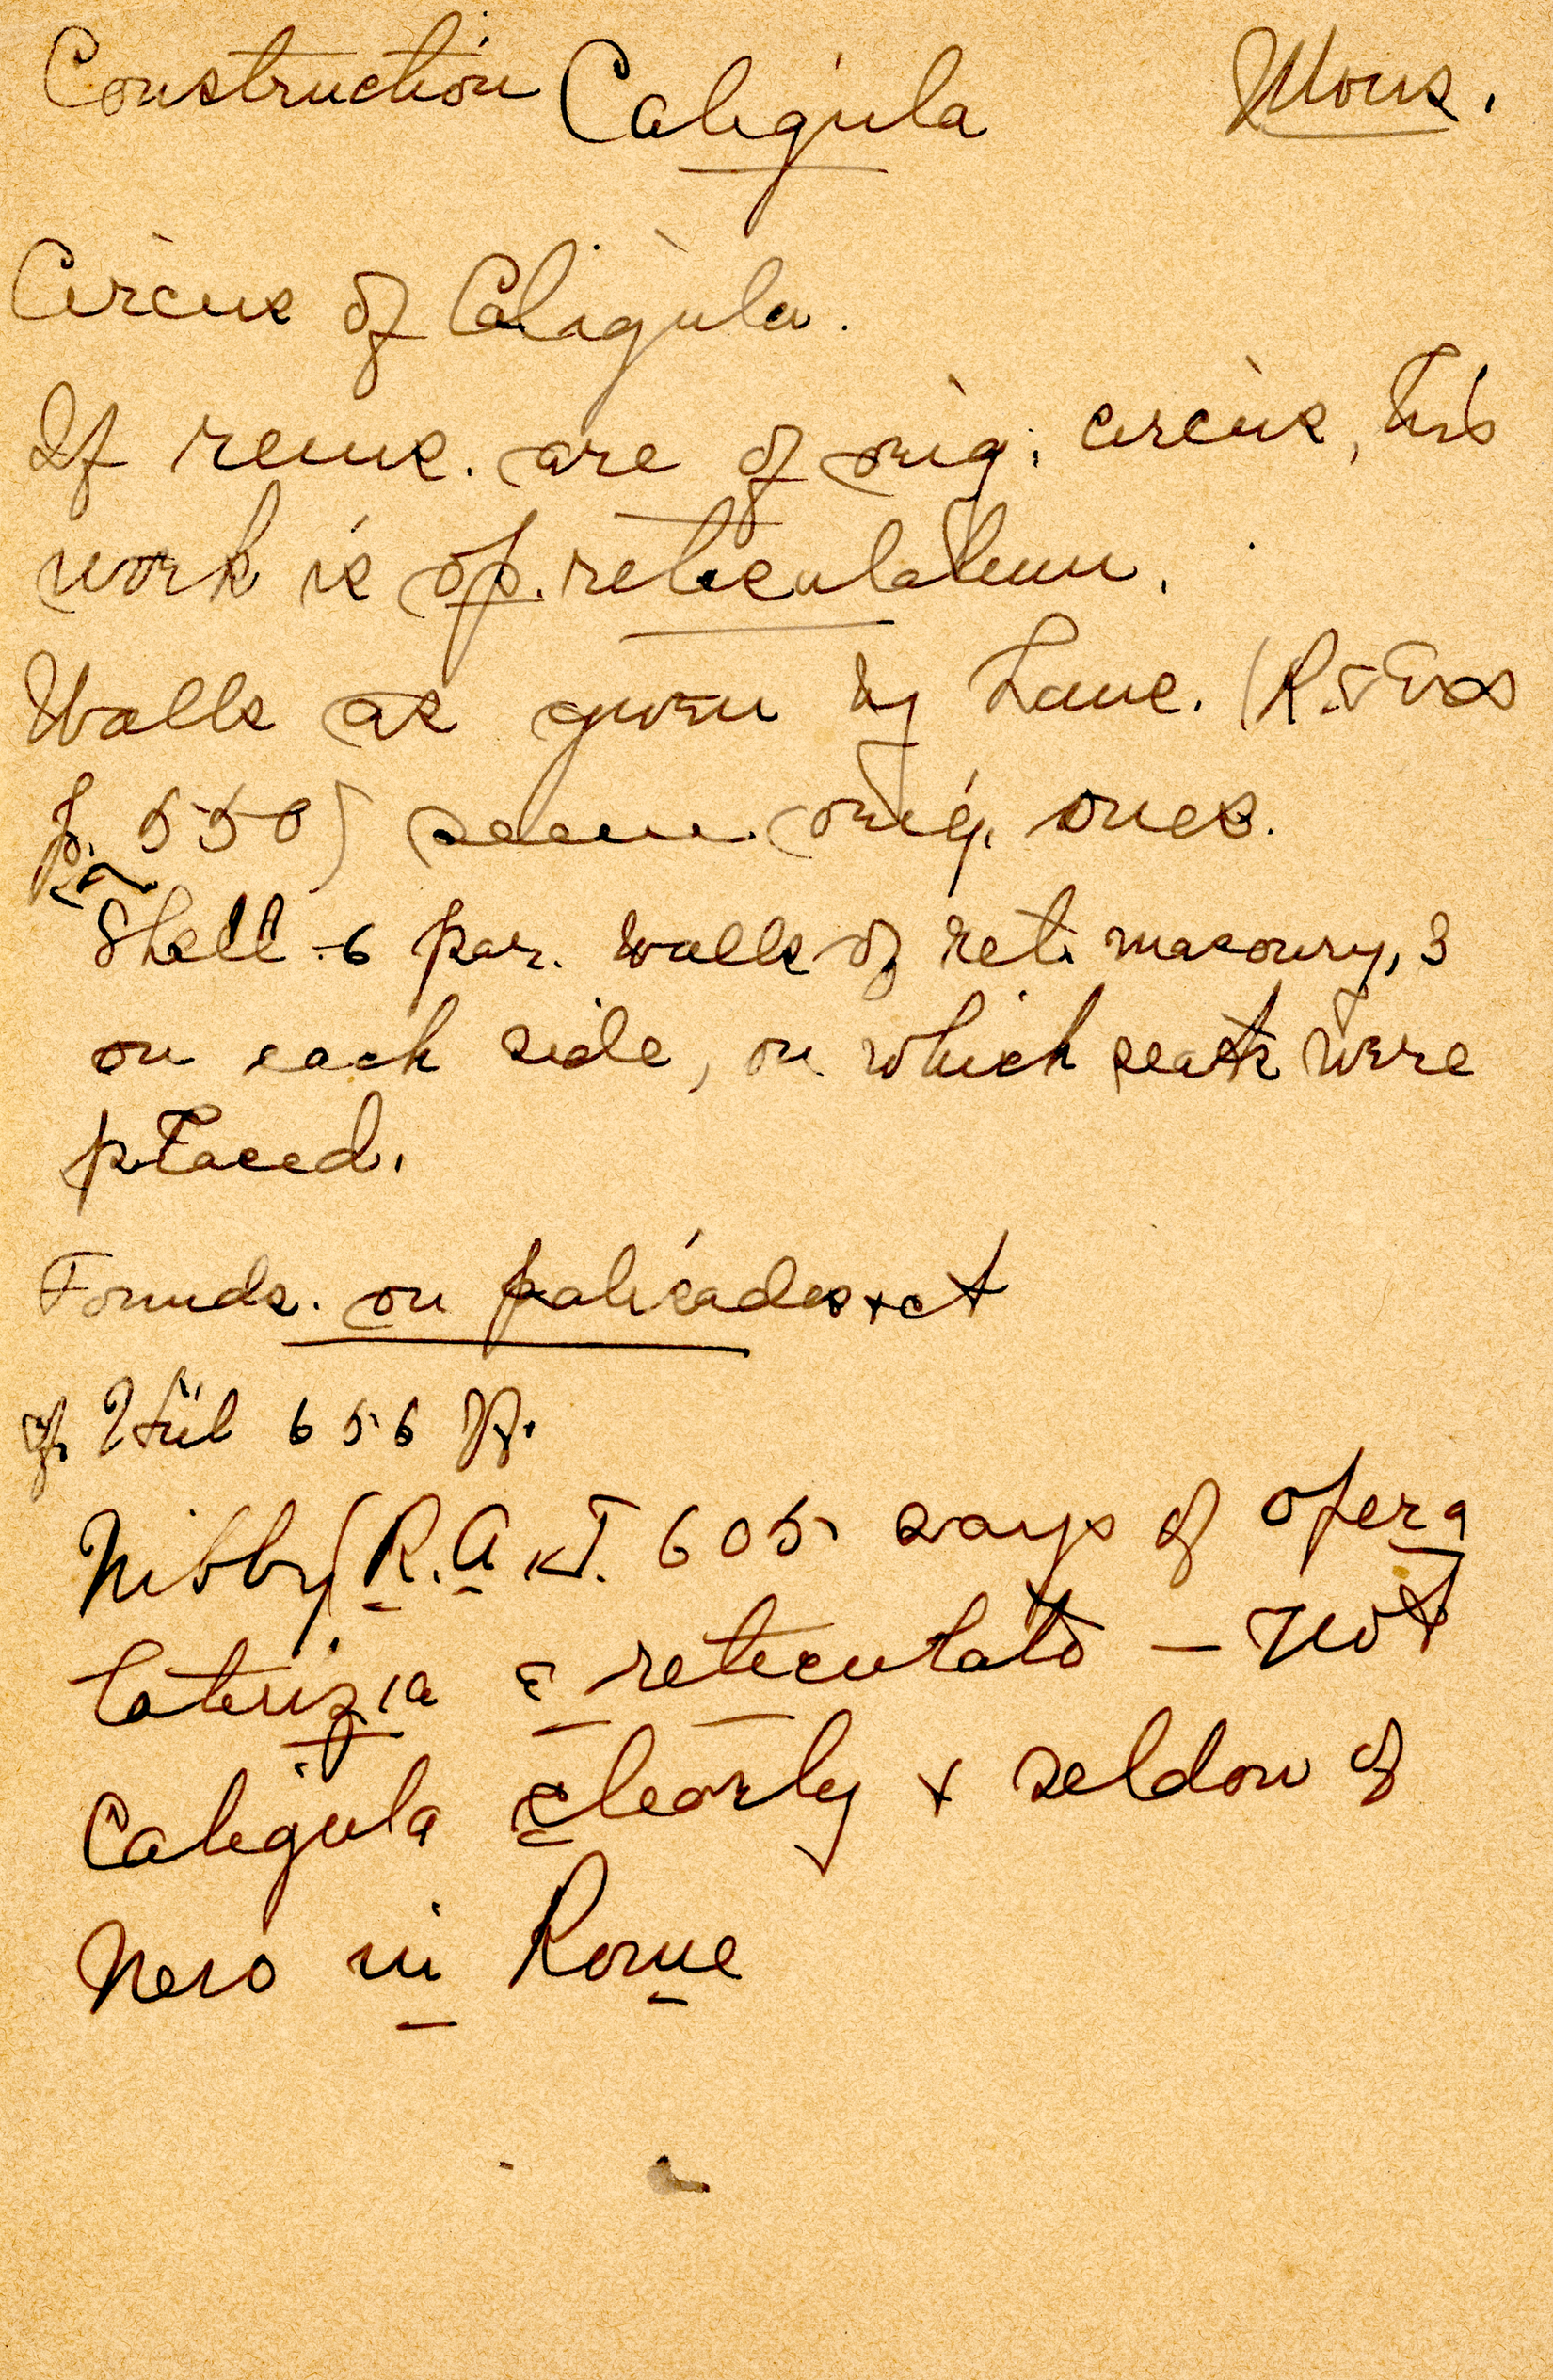 Construction Caligula Mons.
Circus of Caligula.
If rems. are of orig. circus, this
work is op. reticulatum.
Walls as given by Lanc. (R. & Exs
p. 550) seem orig. ones.
Shell - 6 par. walls of ret. masonry, 3
on each side, on which seats were
placed.
Founds. on palisades + ct
cf. Hül 656 ff.
Nibby (R. A. 605 says of opera
laterizia e reticulato — not
Caligula clearly + seldom of
Nero in Rome